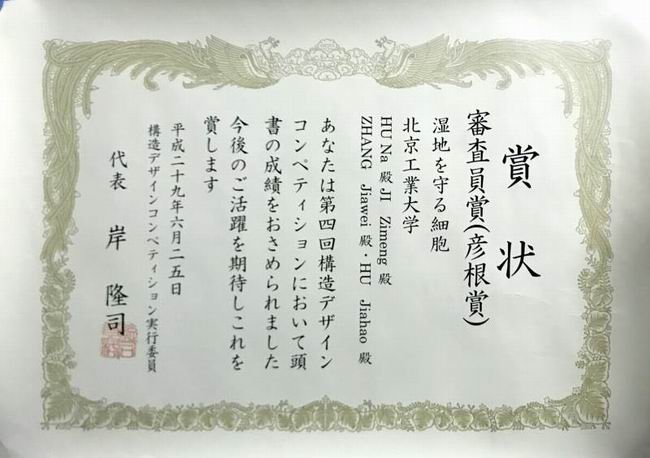 賞状
審査員賞(彦根賞)
湿地を守る細胞
北京工業大学
HU Na 殿 JI Zimeng 殿
ZHANG Jiawei 殿・HU Jiahao 殿
あなたは第四回構造デザイン
コンペティションにおいて頭
書の成績をおさめられました
今後のご活躍を期待しこれを
賞します
平成二十九年六月二五日
構造デザインコンペティション実行委員
代表 岸 隆司